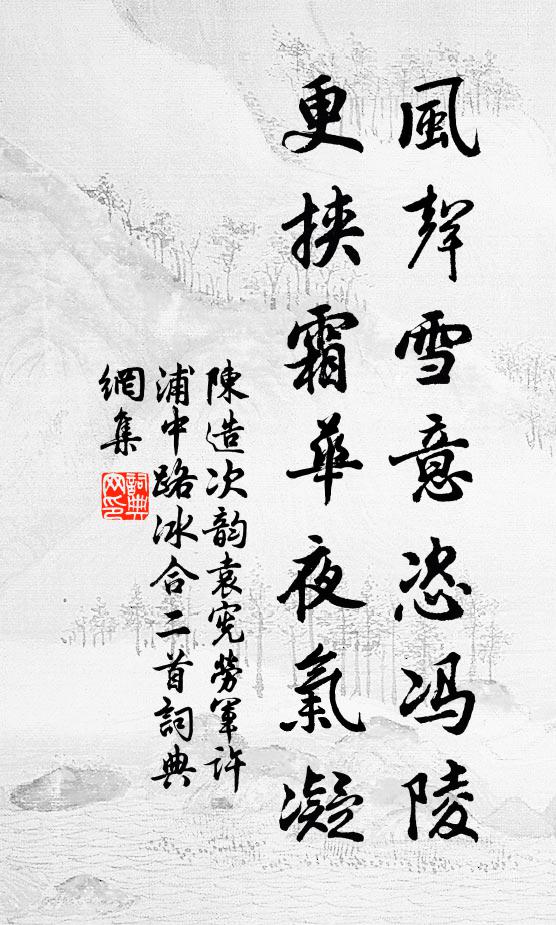 風聲雪意恣冯陵
更挾霜華夜氣凝
陳造次韵袁宪勞軍許
浦中路冰合二首詞典
網集
詞典
网印